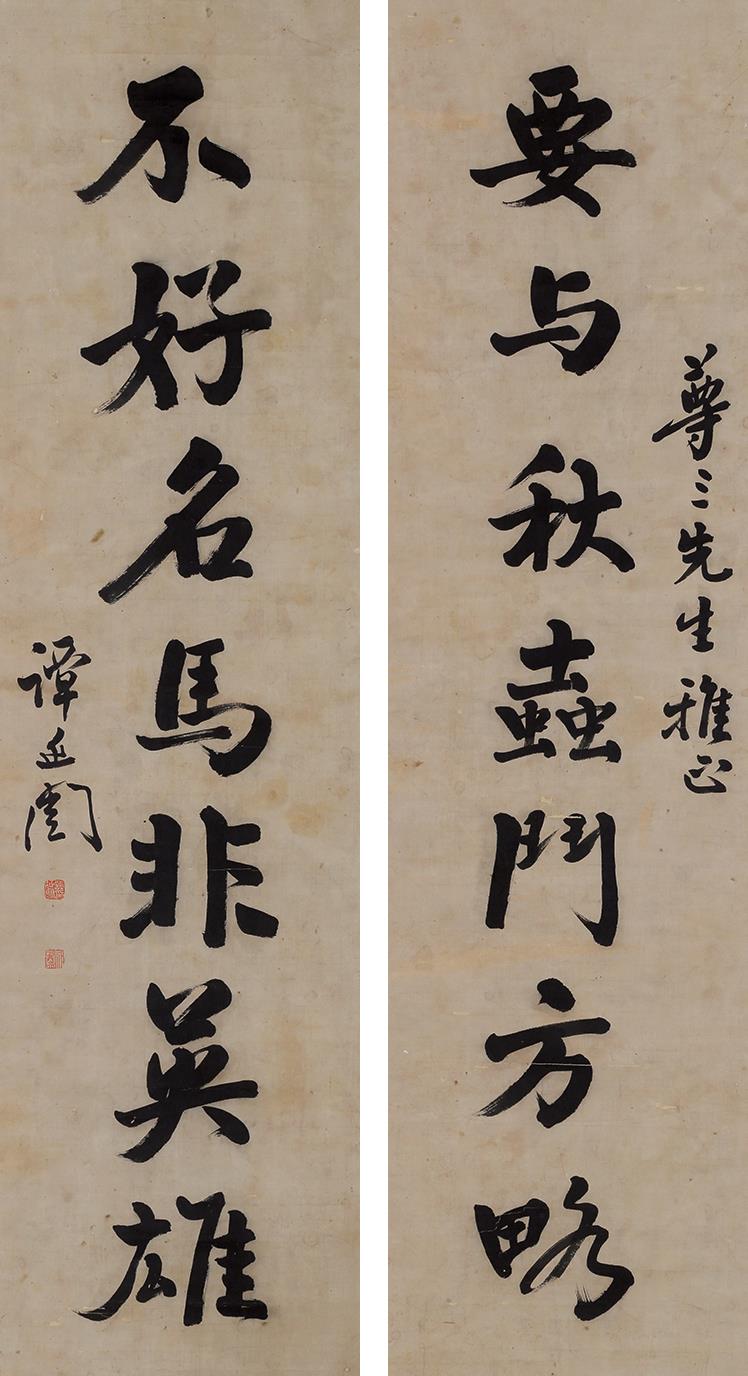 尊三先生雅正
要与秋蟲鬥方略
不好名馬非英雄
譚延闓